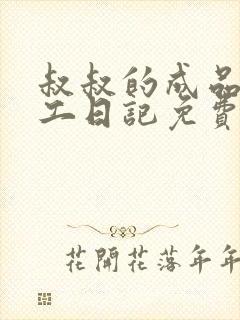 叔叔的成品
工日記免費
花開花落年年